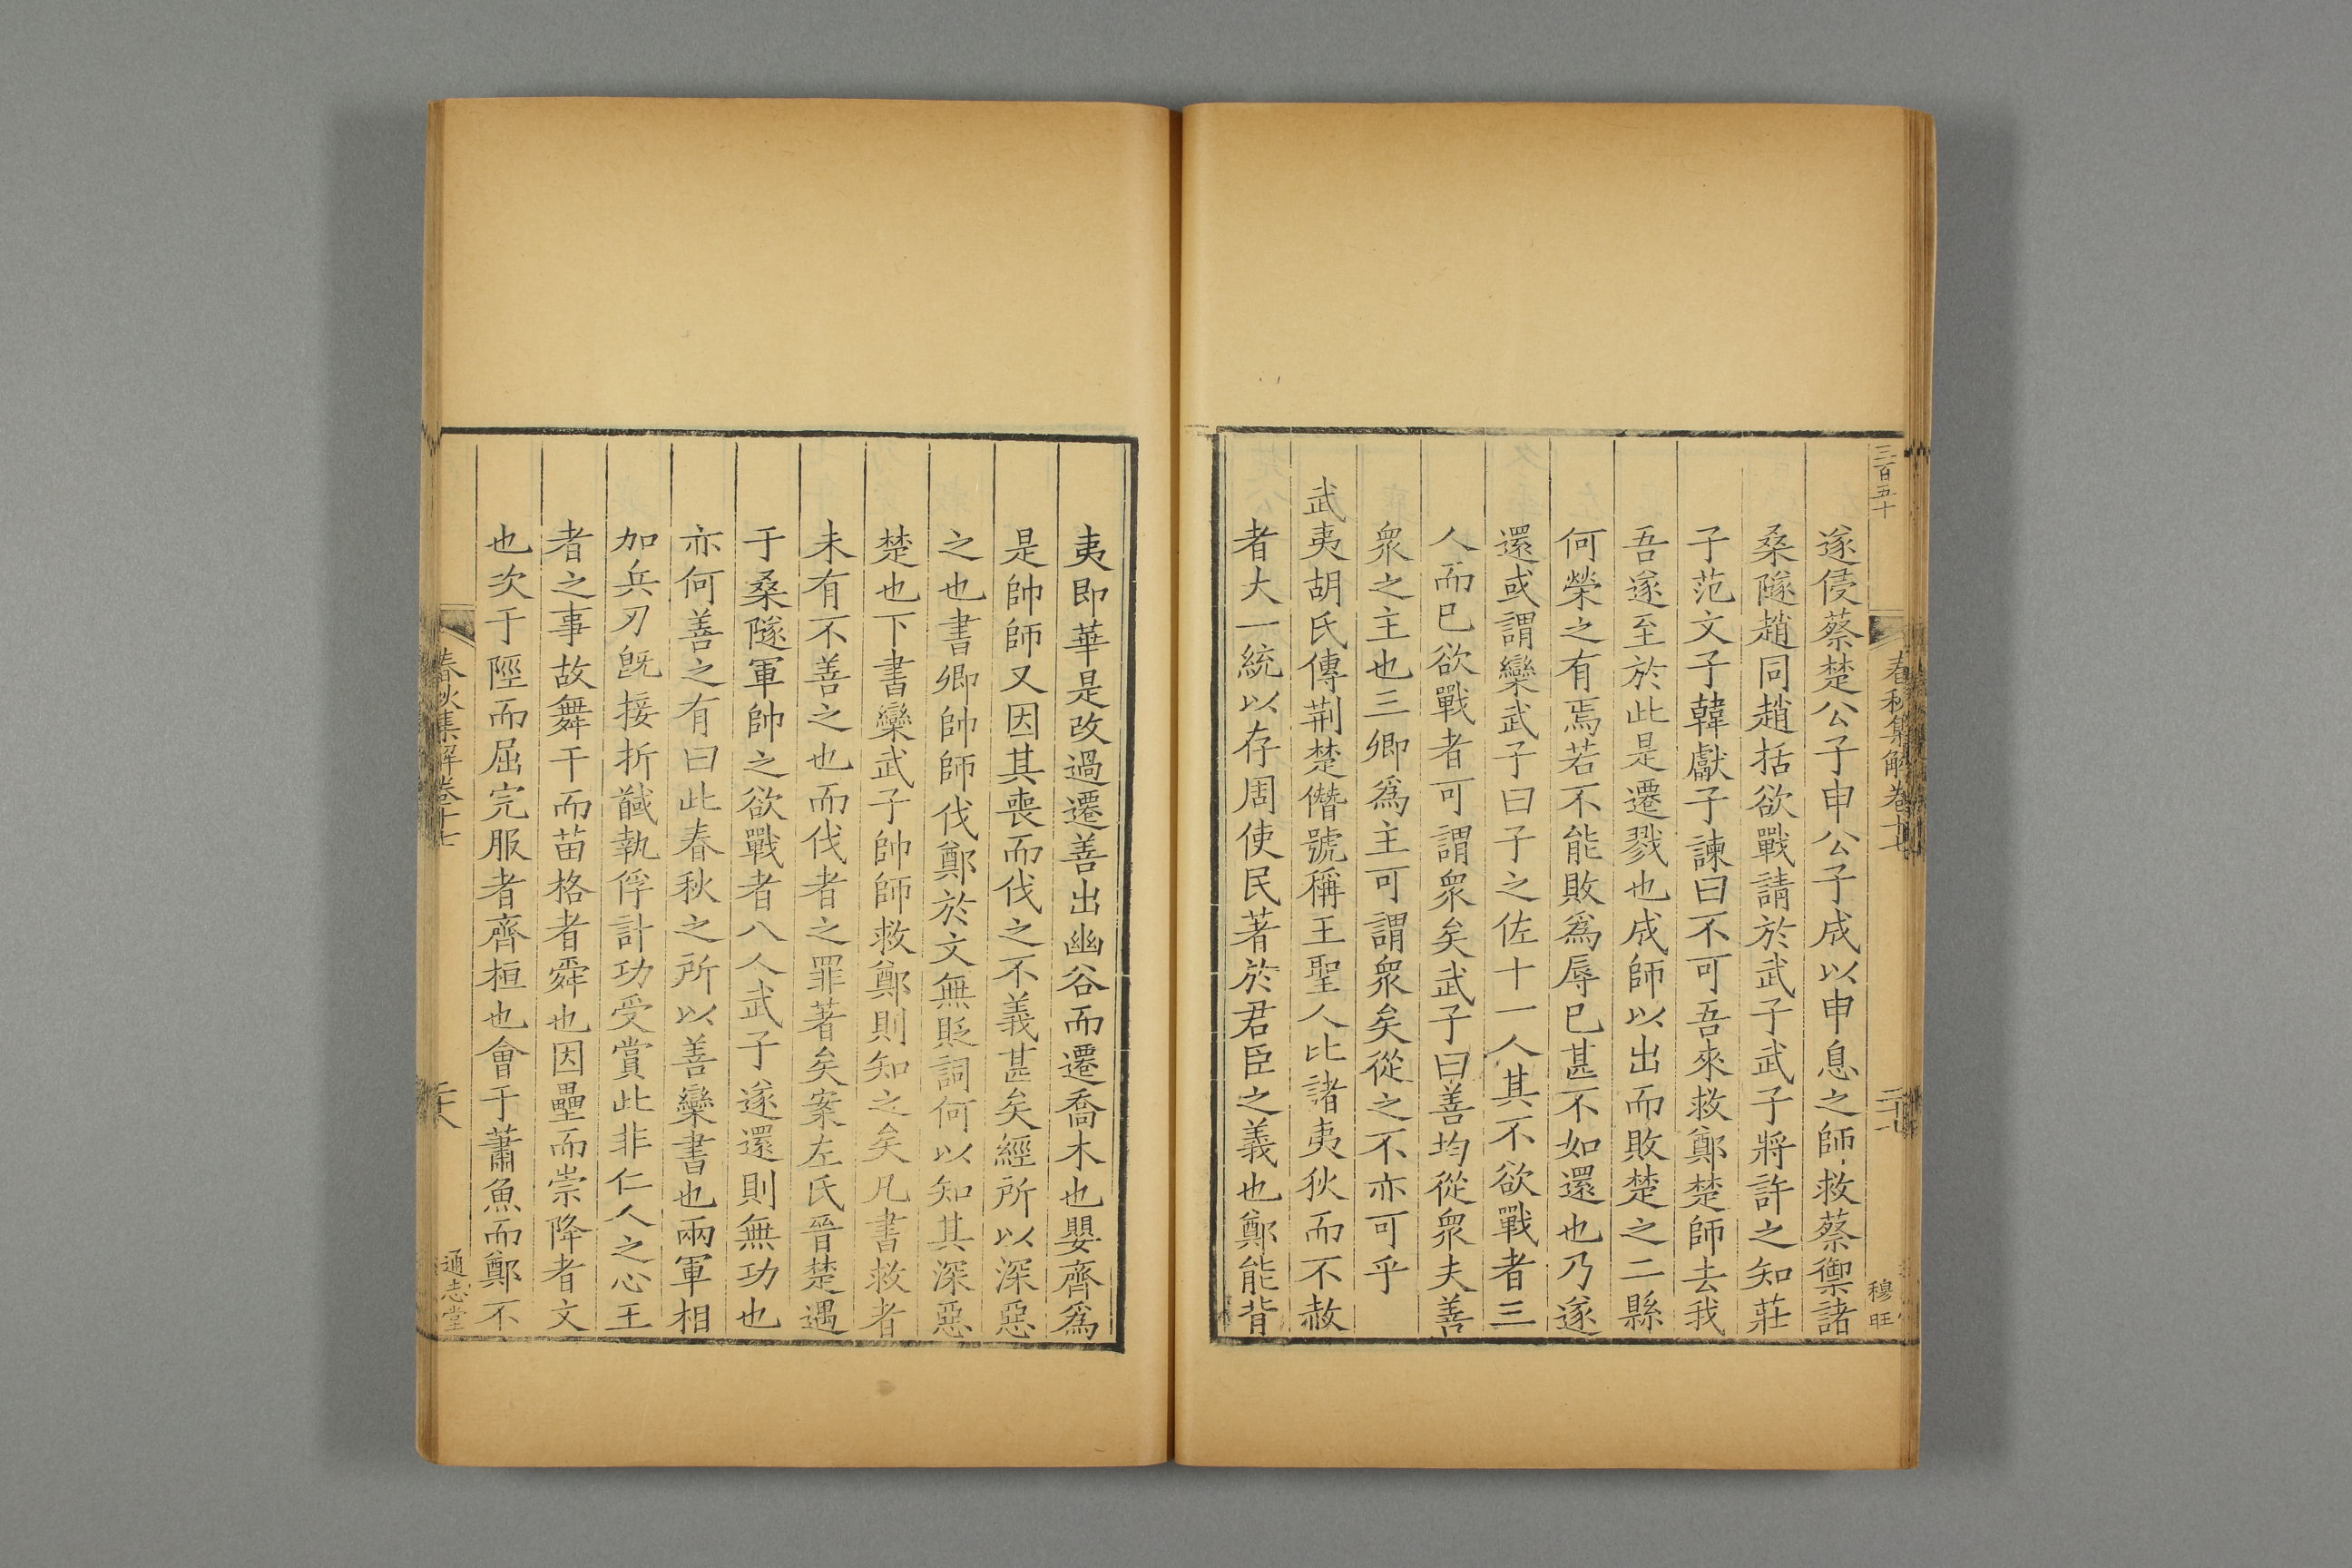 三百五十
春秋集解卷十七
二十七
穆旺
遂侵蔡楚公子申公子成以申息之師救蔡禦諸
桑隧趙同趙括欲戰請於武子武子將許之知莊
子范文子韓獻子諫曰不可吾來救鄭楚師去我
吾遂至於此是遷戮也成師以出而敗楚之二縣
何榮之有焉若不能敗爲辱已甚不如還也乃遂
還或謂欒武子曰子之佐十一人其不欲戰者三
人而已欲戰者可謂衆矣武子曰善均從衆夫善
衆之主也三卿爲主可謂衆矣從之不亦可乎
武夷胡氏傳荆楚僭號稱王聖人比諸夷狄而不赦
者大一統以存周使民著於君臣之義也鄭能背
夷即華是改過遷善出幽谷而遷喬木也嬰齊爲
是帥師又因其喪而伐之不義甚矣經所以深惡
之也書卿帥師伐鄭於文無貶詞何以知其深惡
楚也下書欒武子帥師救鄭則知之矣凡書救者
未有不善之也而伐者之罪著矣案左氏晉楚遇
于桑隧軍帥之欲戰者八人武子遂還則無功也
亦何善之有曰此春秋之所以善欒書也兩軍相
加兵刃旣接折馘執俘計功受賞此非仁人之心王
者之事故舞干而苗格者舜也因壘而崇降者文
也次于陘而屈完服者齊桓也會于蕭魚而鄭不
春秋集解卷十七
通志堂